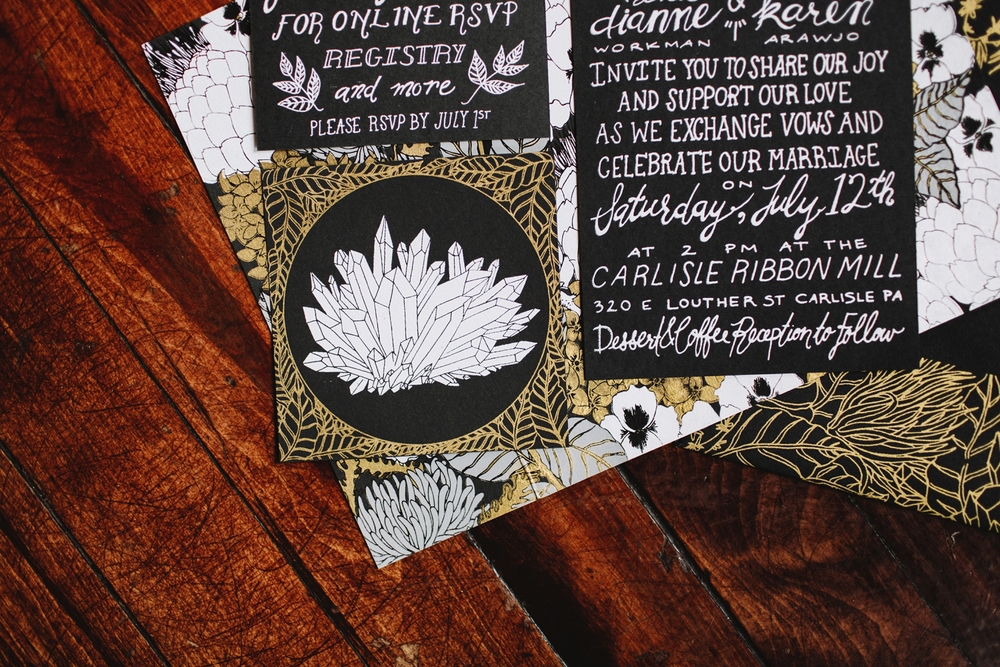 FOR ONLINE RSVP
REGISTRY
and more
PLEASE RSVP BY JULY 1ST
dianne & karen
WORKMAN ARAWJO
INVITE YOU TO SHARE OUR JOY
AND SUPPORT OUR LOVE
AS WE EXCHANGE VOWS AND
CELEBRATE OUR MARRIAGE
ON
Saturday, July 12th
AT 2 PM AT THE
CARLISLE RIBBON MILL
320 E LOUTHER ST CARLISLE PA
Dessert & Coffee Reception to Follow